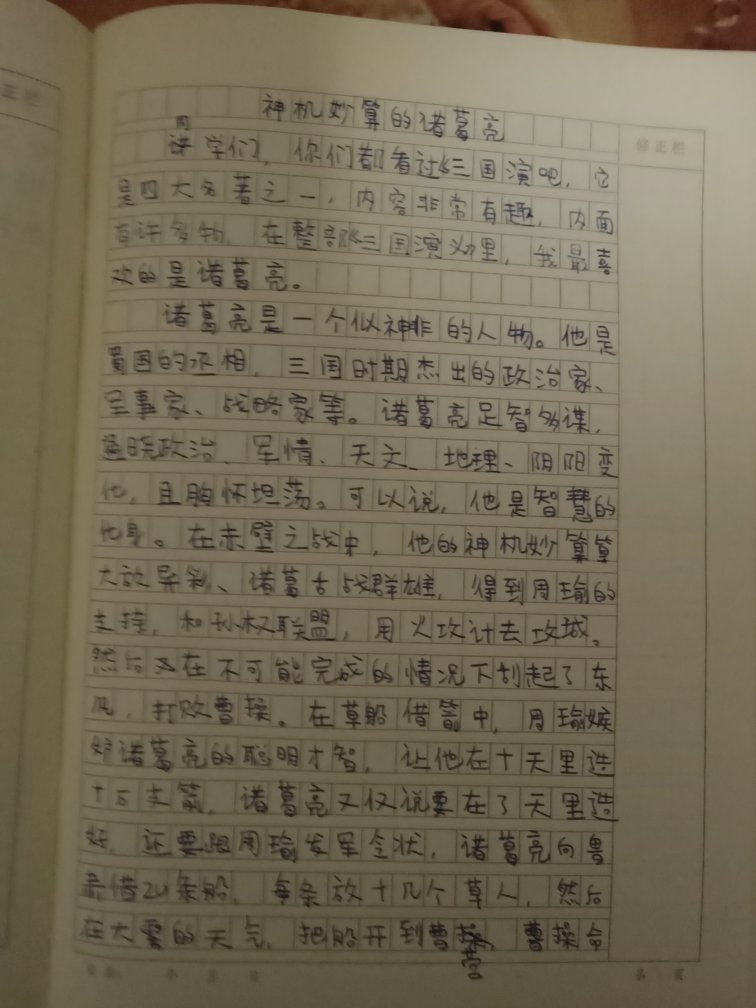 神机妙算的诸葛亮
修正栏
同
学们，你们都看过《三国演吧，它
是四大名著之一，内容非常有趣，内面
有许多物，在整部《三国演义》里，我最喜
欢的是诸葛亮。
诸葛亮是一个似神非的人物。他是
国的丞相，三国时期杰出的政治家、
军事家、战略家等。诸葛亮足智多谋，
通晓政治、军情、天文、地理、阴阳变
化，且胸怀坦荡。可以说，他是智慧的
化身。在赤壁之战中，他的神机妙算
大放异彩、诸葛舌战群雄，得到周瑜的
支持，和孙权联盟，用火攻计去攻城。
然后又在不可能完成的情况下刮起了东
风，打败曹操。在草船借箭中，周瑜嫉
妒诸葛亮的聪明才智，让他在十天里造
十万支箭，诸葛亮又仅说要在3天里造
好，还要跟周瑜发军令状，诸葛亮向鲁
肃借20条船，每条放十几个草人，然后
在大雾的天气，把船开到曹操营，曹操命